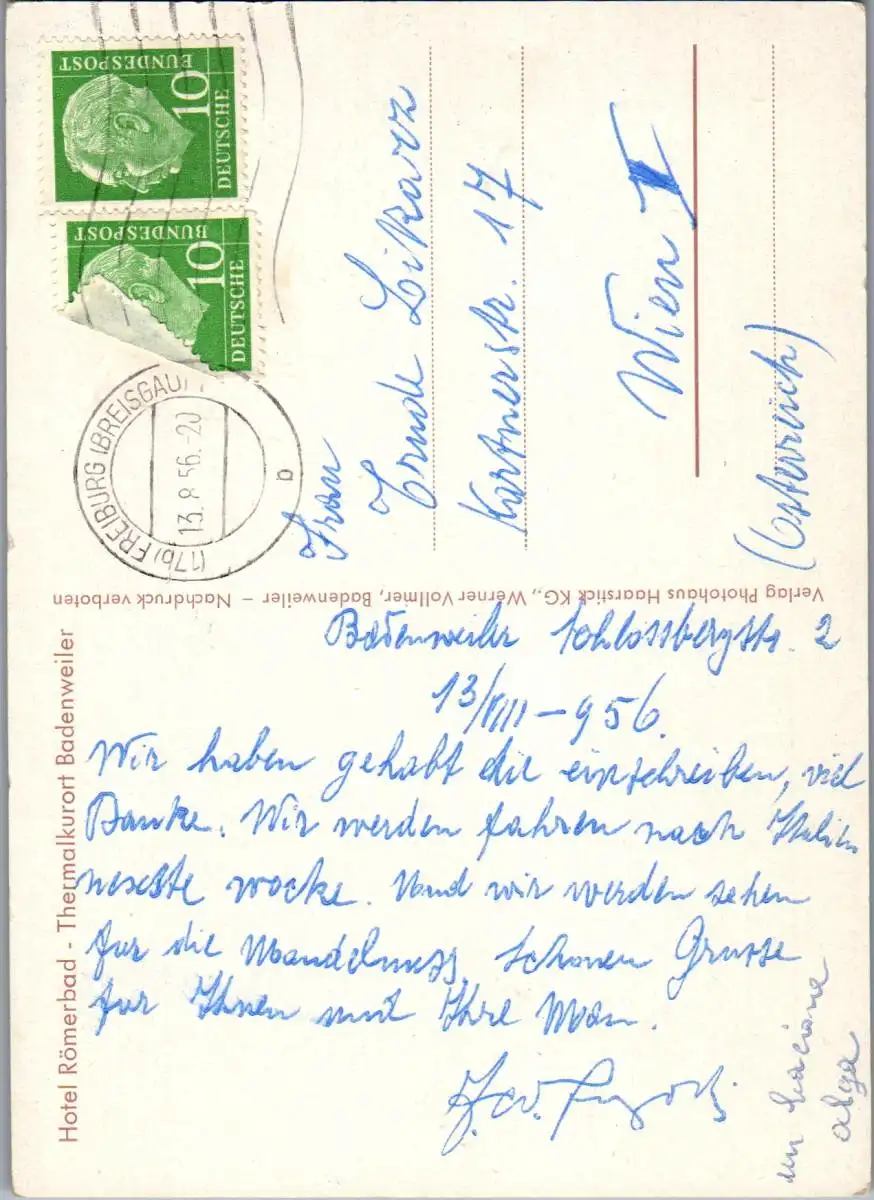 Hotel Römerbad - Thermalkurort Badenweiler
Badenweiler Schlossbergstr. 2
13/VIII - 956.
Wir haben gehabt die einschreiben, viel
Danke. Wir werden fahren nach Italien
nexste wocke. Und wir werden sehen
fur die Mandelnuss. Schonen Grusse
fur Ihnen und Ihre Man.
un bacione
alga
Verlag Photohaus Haarstick KG., Werner Vollmer, Badenweiler – Nachdruck verboten
DEUTSCHE
BUNDESPOST
10
DEUTSCHE
BUNDESPOST
10
(17b) FREIBURG (BREISGAU)
13.8.56.-20
b
Frau
Trude Likarz
Kartnerstr. 17
Wien I
(Österreich)